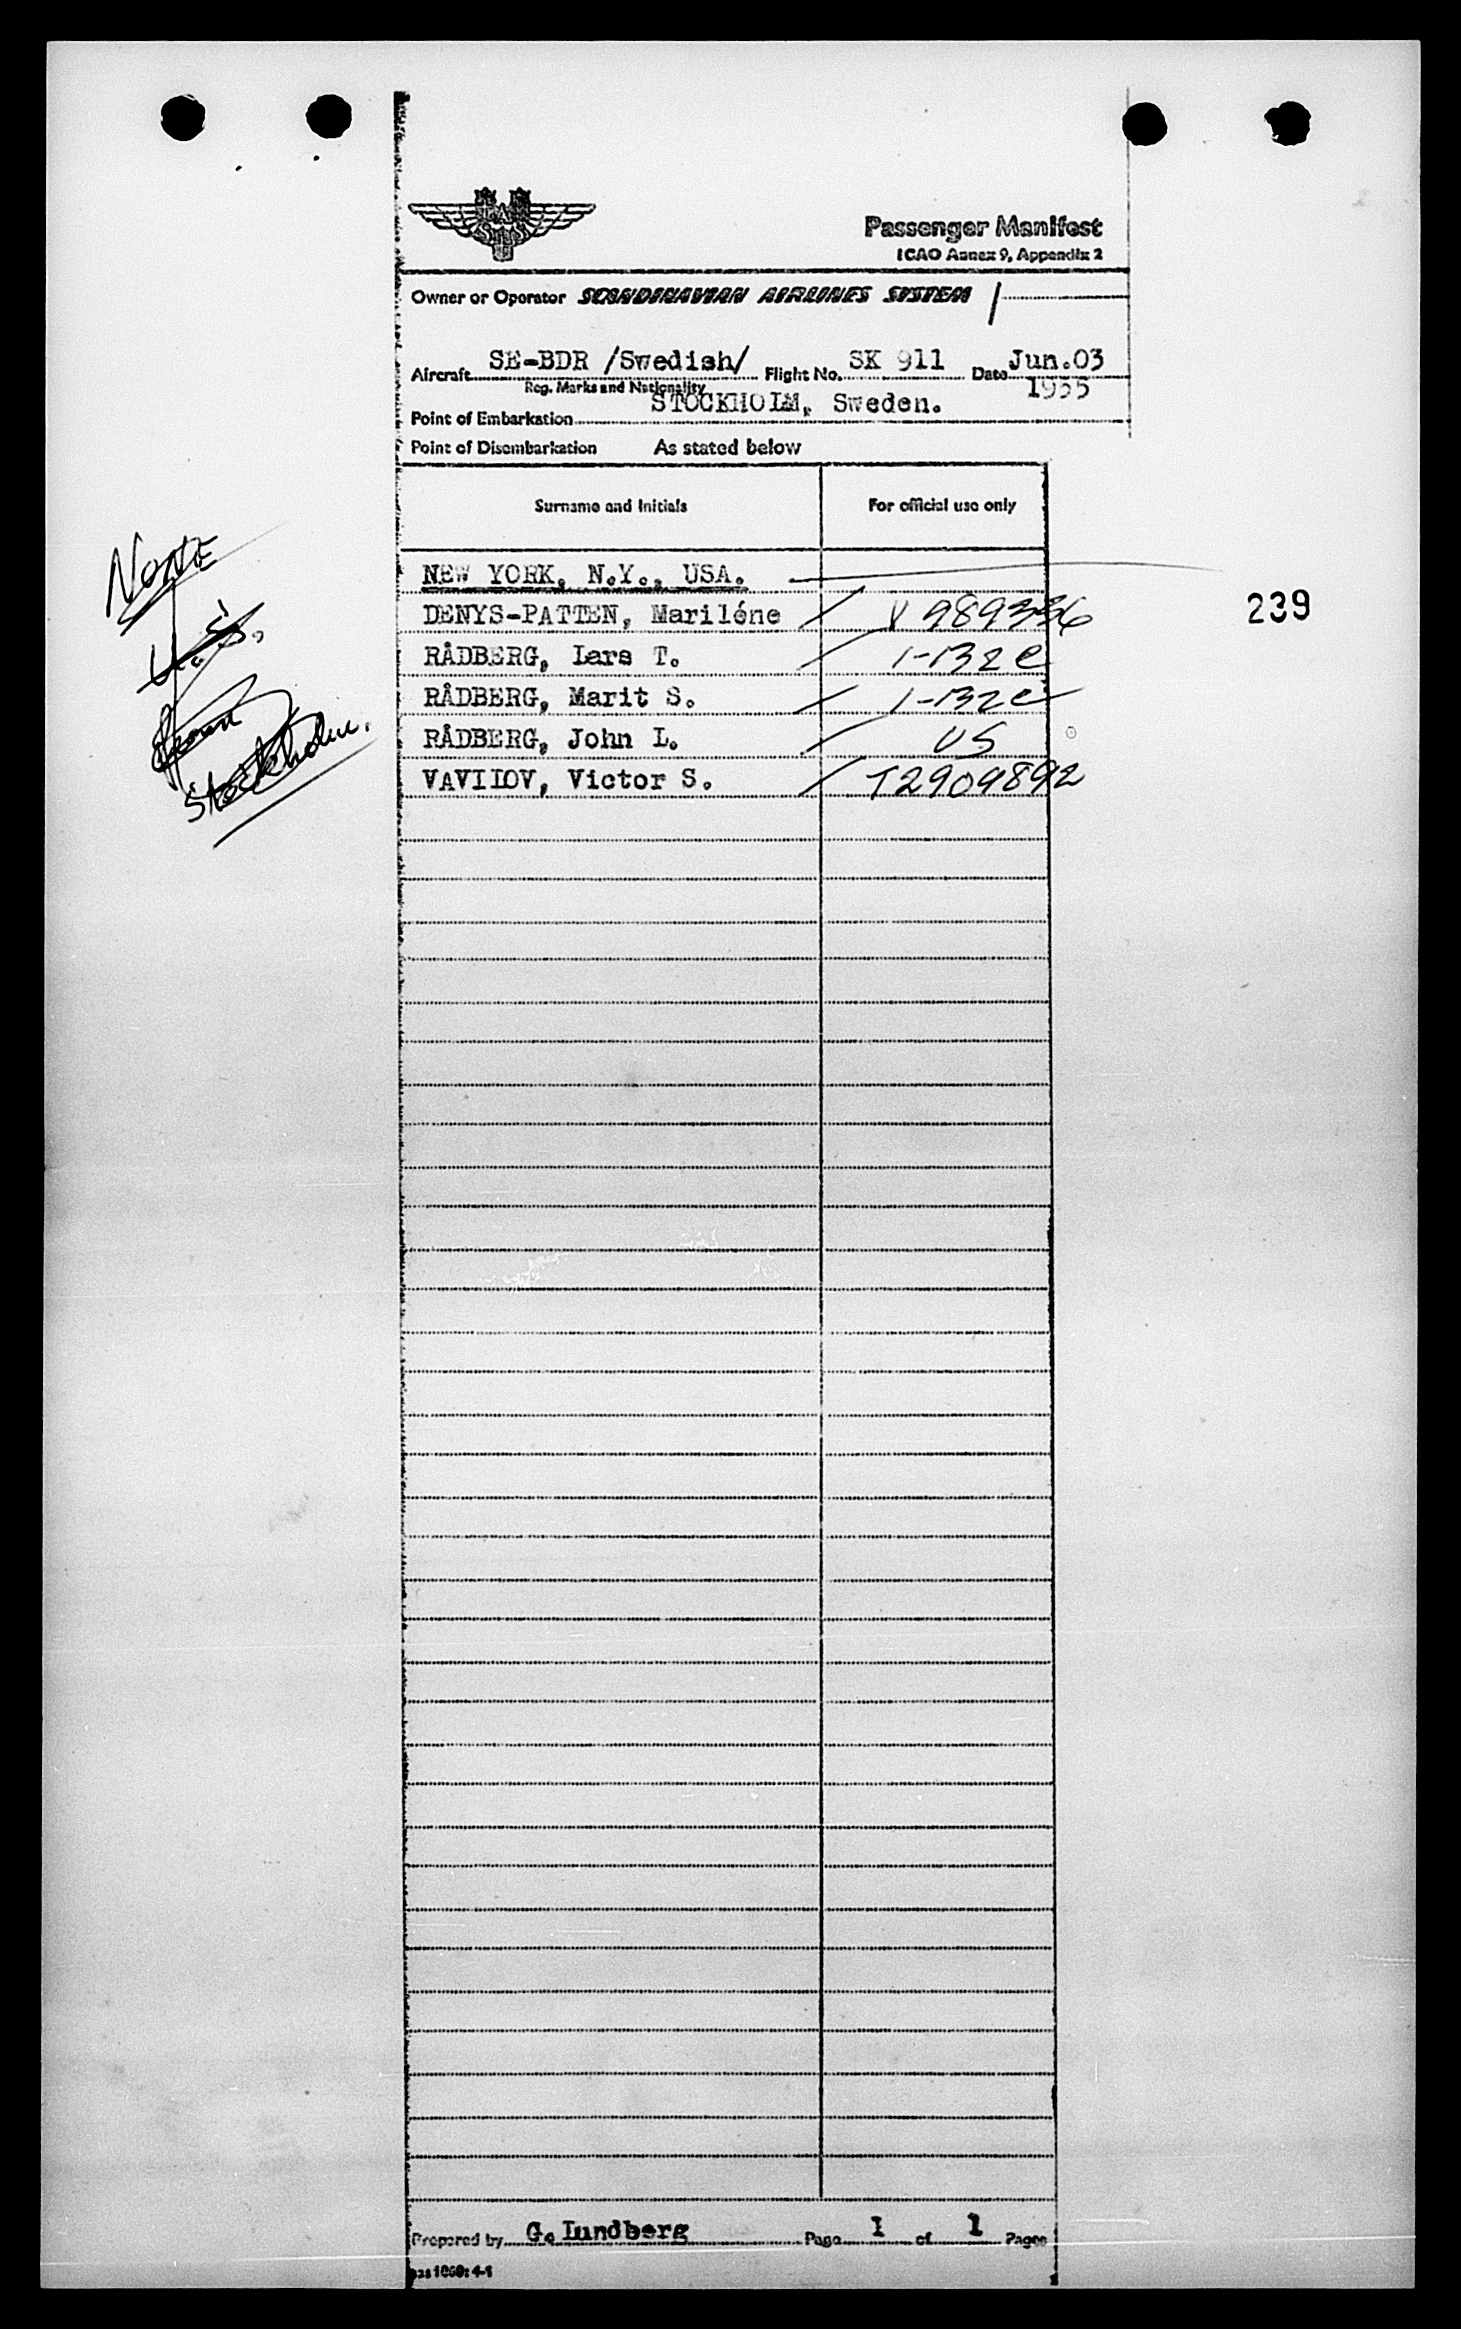 SAS
Passenger Manifest
ICAO Annex 9, Appendix 2
Owner or Operator SCANDINAVIAN AIRLINES SYSTEM /
Aircraft SE-BDR /Swedish/ Flight No. SK 911 Date Jun.03
Reg. Marks and Nationality 1955
Point of Embarkation STOCKHOLM, Sweden.
Point of Disembarkation As stated below
Surname and Initials For official use only
NEW YORK, N.Y., USA.
DENYS-PATTEN, Mariléne / V 989336 239
RÅDBERG, Lars T. / 1-132 e
RÅDBERG, Marit S. / 1-132 e
RÅDBERG, John L. / US
VAVILOV, Victor S. / T2909892
None
U.S.
from
Stockholm.
Prepared by G. Lundberg Page 1 of 1 Pages
1060: 4-1